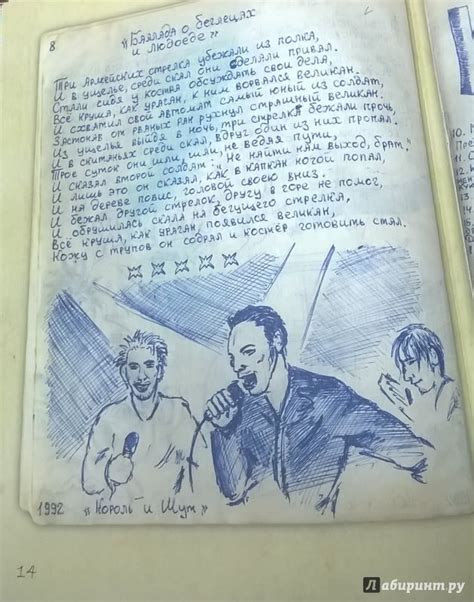 8
"Баллада о беглецах
и людоеде"
Три Армейских стрелка убежали из полка,
И в ущелье, среди скал они сделали привал.
Стали сидя у костра обсуждать свои дела,
Всё круша, как ураган, к ним ворвался великан.
И схватил свой автомат самый юный из солдат,
Застонав от рваных ран рухнул страшный великан.
Из ущелья выйдя в ночь, три стрелка бежали прочь,
И в скитаньях среди скал, вдруг один из них пропал.
Трое суток они шли, шли, не ведая пути,
И сказал второй солдат: "Не найти нам выход, брат."
И лишь это он сказал, как в капкан ногой попал,
И на дереве повис, головой своею вниз.
И бежал другой стрелок, другу в горе не помог,
И обрушилась скала на бегущего стрелка,
Всё круша, как ураган, появился великан,
Кожу с трупов он содрал и костёр готовить стал.
1992 "Король и Шут"
14
10.
11.
12.
Лабиринт.ру